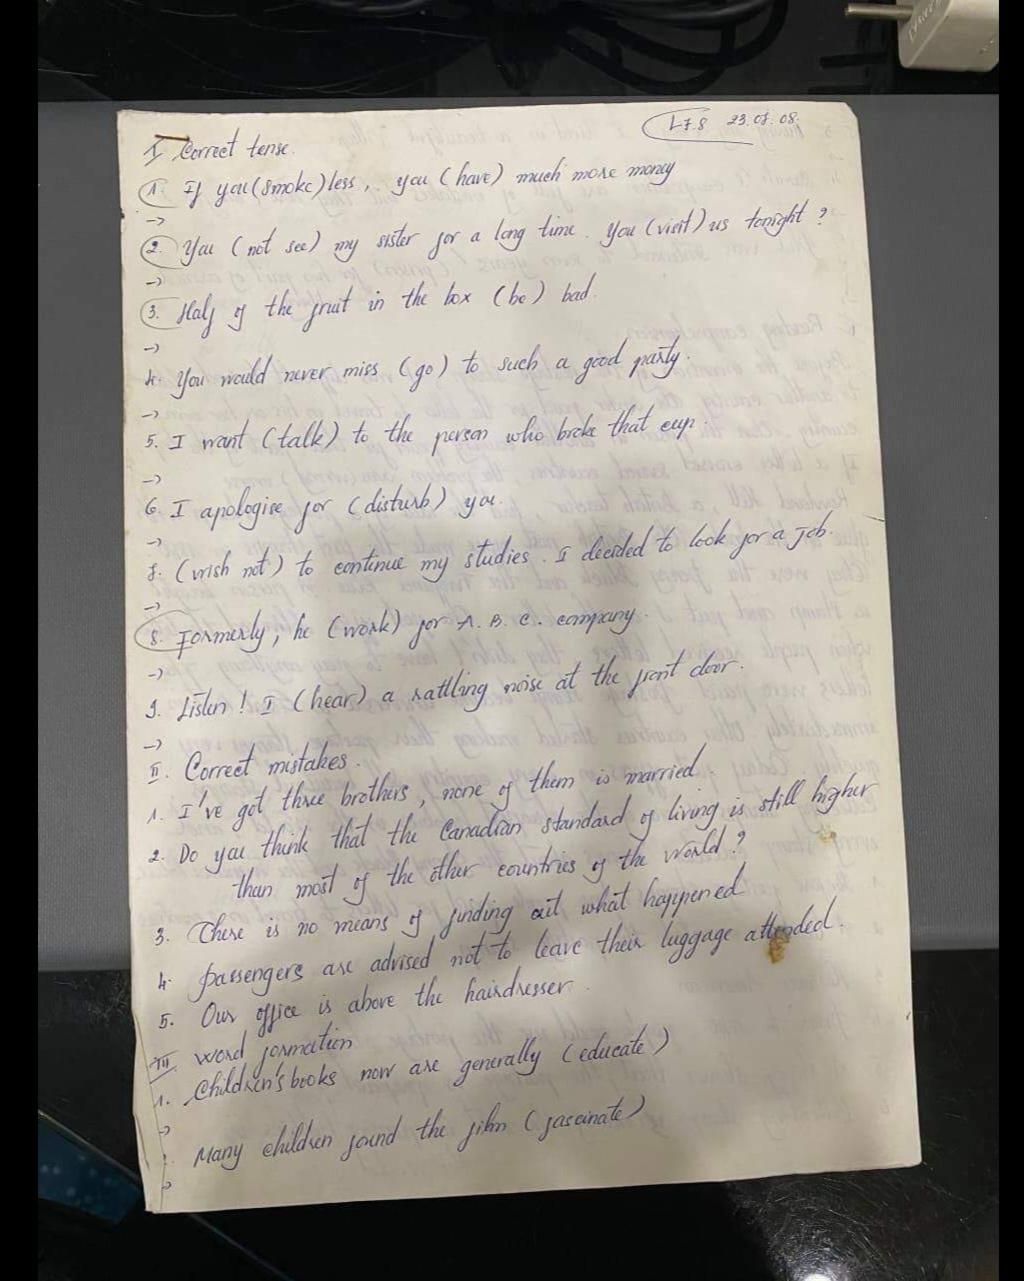 L7.8 23.07.08.
I. Correct tense.
1. If you (smoke) less, you (have) much more money
->
2. You (not see) my sister for a long time. You (visit) us tonight?
->
3. Half of the fruit in the box (be) bad.
->
4. You would never miss (go) to such a good party.
->
5. I want (talk) to the person who broke that cup.
->
6. I apologise for (disturb) you.
->
7. (wish not) to continue my studies. I decided to look for a job.
->
8. Formerly, he (work) for A.B.C. company.
->
9. Listen! I (hear) a rattling noise at the front door.
->
II. Correct mistakes.
1. I've got three brothers, none of them is married.
2. Do you think that the Canadian standard of living is still higher
than most of the other countries of the world?
3. There is no means of finding out what happened
4. passengers are advised not to leave their luggage attended.
5. Our office is above the hairdresser.
III word formation
1. Children's books now are generally (educate)
->
Many children found the film (fascinate)
->